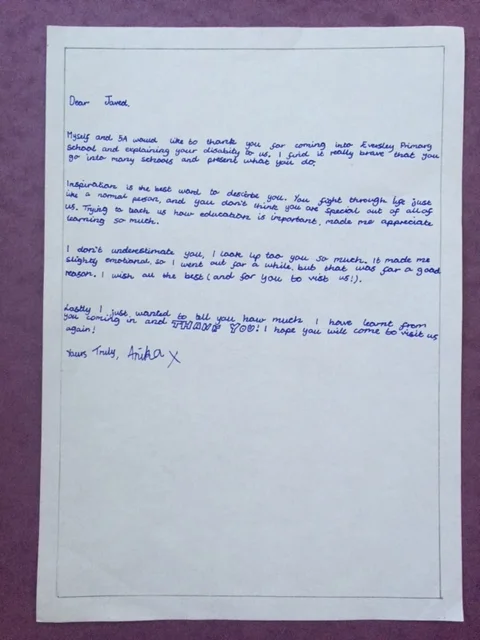 Dear Javed,
Myself and 5A would like to thank you for coming into Eversley Primary
school and explaining your disability to us. I find it really brave that you
go into many schools and present what you do.
Inspiration is the best word to describe you. You fight through life just
like a normal person, and you don't think you are special out of all of
us. Trying to teach us how education is important, made me appreciate
learning so much.
I don't underestimate you, I look up too you so much. It made me
slightly emotional, so I went out for a while, but that was for a good
reason. I wish all the best (and for you to visit us!).
Lastly I just wanted to tell you how much I have learnt from
you coming in and THANK YOU! I hope you will come to visit us
again!
Yours Truly, Anika X